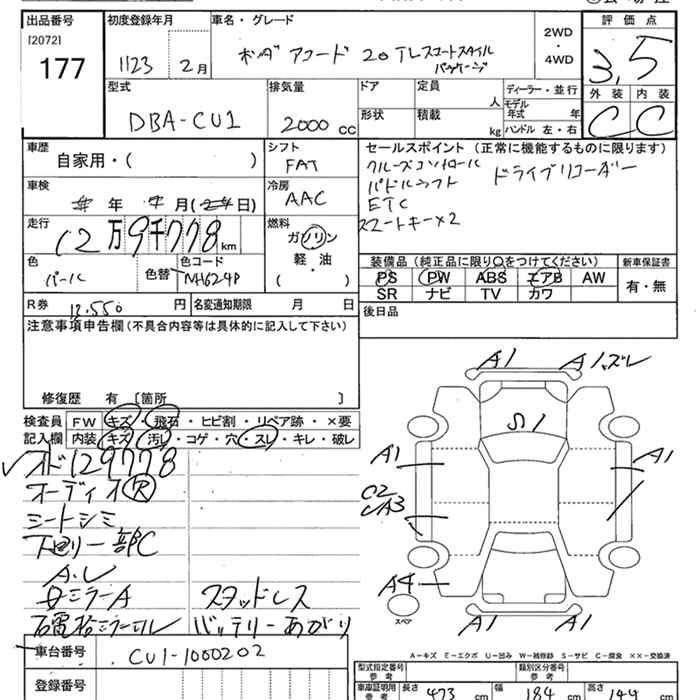 出品番号
[2072]
177
初度登録年月
H23 2月
車名・グレード
ホンダ アコード 20TLスポーツスタイル
パッケージ
2WD
・
4WD
評価点
3.5
外装 内装
C C
型式
DBA-CU1
排気量
2000 cc
ドア
形状
定員
人
積載
kg
ディーラー・並行
モデル年式 年
ハンドル 左・右
車歴
自家用・( )
シフト
FAT
車検
年 月( 日)
冷房
AAC
走行
12万9千778km
燃料
ガソリン
軽・油
( )
色
パール
色替
色コード
NH624P
セールスポイント (正常に機能するものに限ります)
クルーズコントロール ドライブレコーダー
パドルシフト
ETC
スマートキー×2
装備品 (純正品に限り○をつけてください)
PS PW ABS エアB AW
SR ナビ TV カワ
新車保証書
有・無
R券
13,550 円
名変通知期限 月 日
後日品
注意事項申告欄(不具合内容等は具体的に記入して下さい)
修復歴 有 [箇所 ]
検査員
記入欄
FW キズ・飛石・ヒビ割・リペア跡・×要
内装 キズ・汚レ・コゲ・穴・スレ・キレ・破レ
メド129778
オーディオR
シートシミ
下回り一部C
A.U
ミラーA
スタッドレス
バッテリーあがり
A1
A1ズレ
S1
A1
A1
C2
A3
A4
スペア
A1
A1
A-キズ E-エクボ U-凹み W-補修跡 S-サビ C-腐食 ××-交換済
車台番号
CU1-1000202
登録番号
型式指定番号
参考
類別区分番号
参考
車庫証明用
参考
長さ 473 cm
幅 184 cm
高さ 144 cm